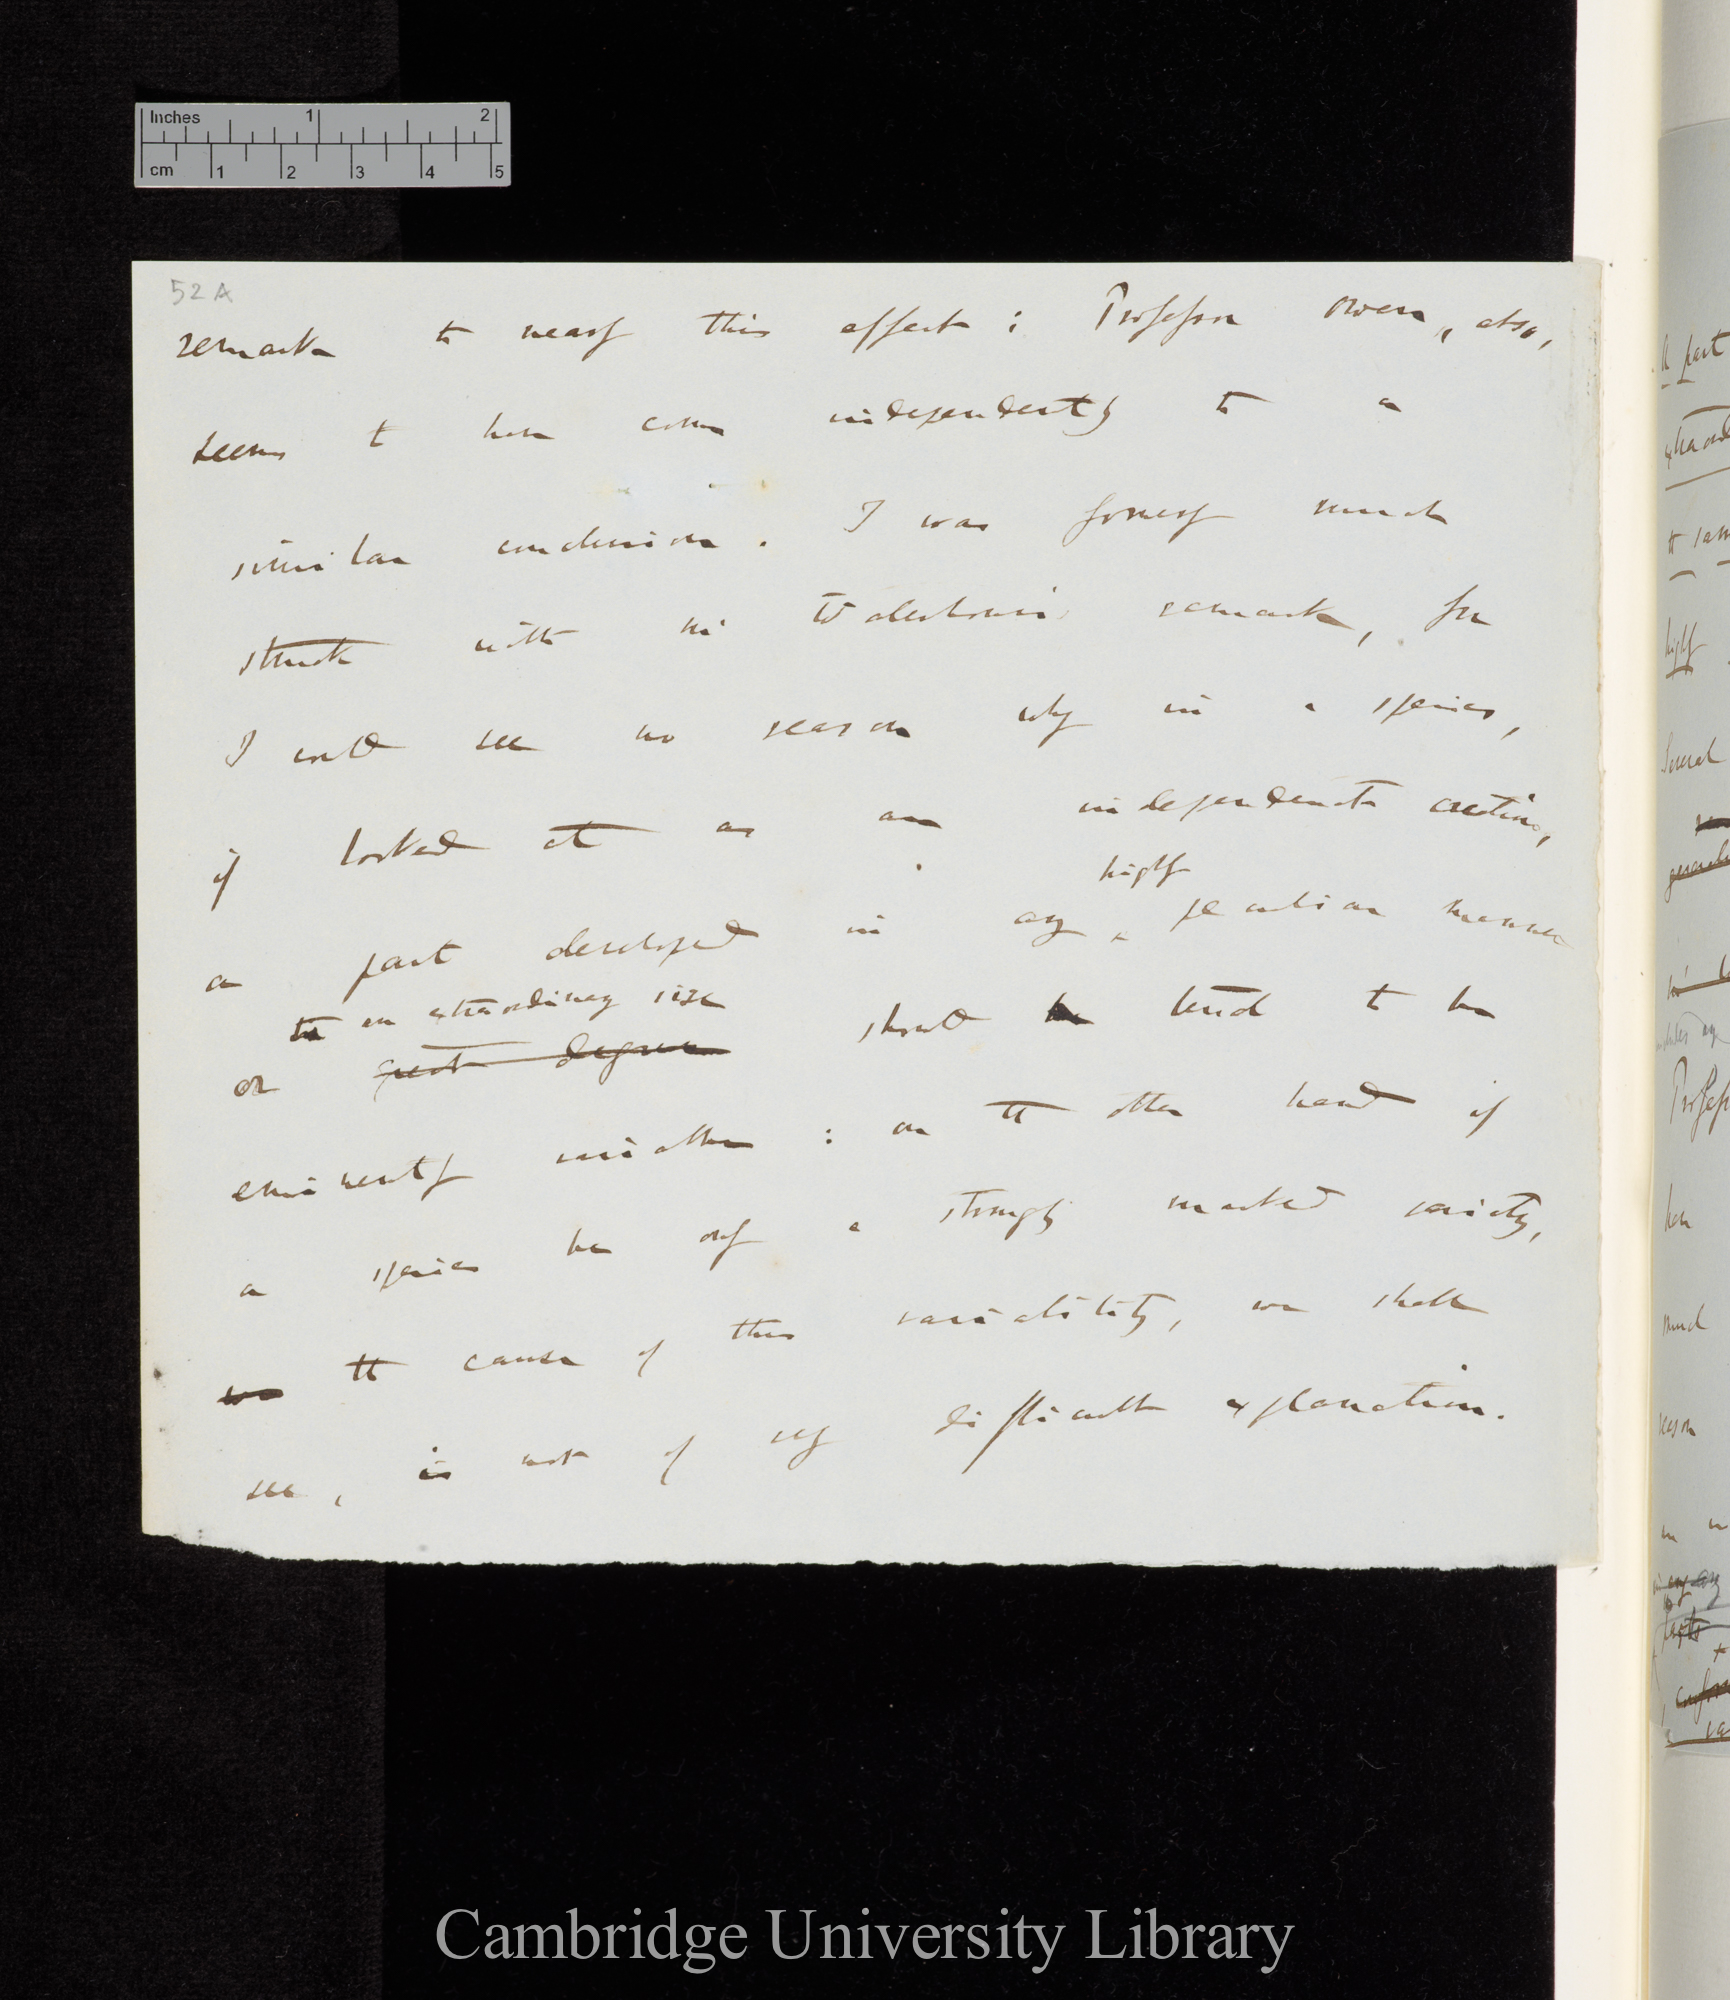 Inches 1 2
cm 1 2 3 4 5
52 A
remark to nearly this effect: Professor Owen, also,
seems to have come independently to a
similar conclusion. I was formerly much
struck with Mr Waterhouse's remark, for
I could see no reason why in a species,
if looked at as an independent creation,
highly
a part developed in any peculiar manner
to an extraordinary size
or great degree should be tend to be
eminently variable: on the other hand if
a species be only a strongly marked variety,
we the cause of this variability, we shall
see, is not of very difficult explanation.
part
highly
Several
have
much
reason
Cambridge University Library